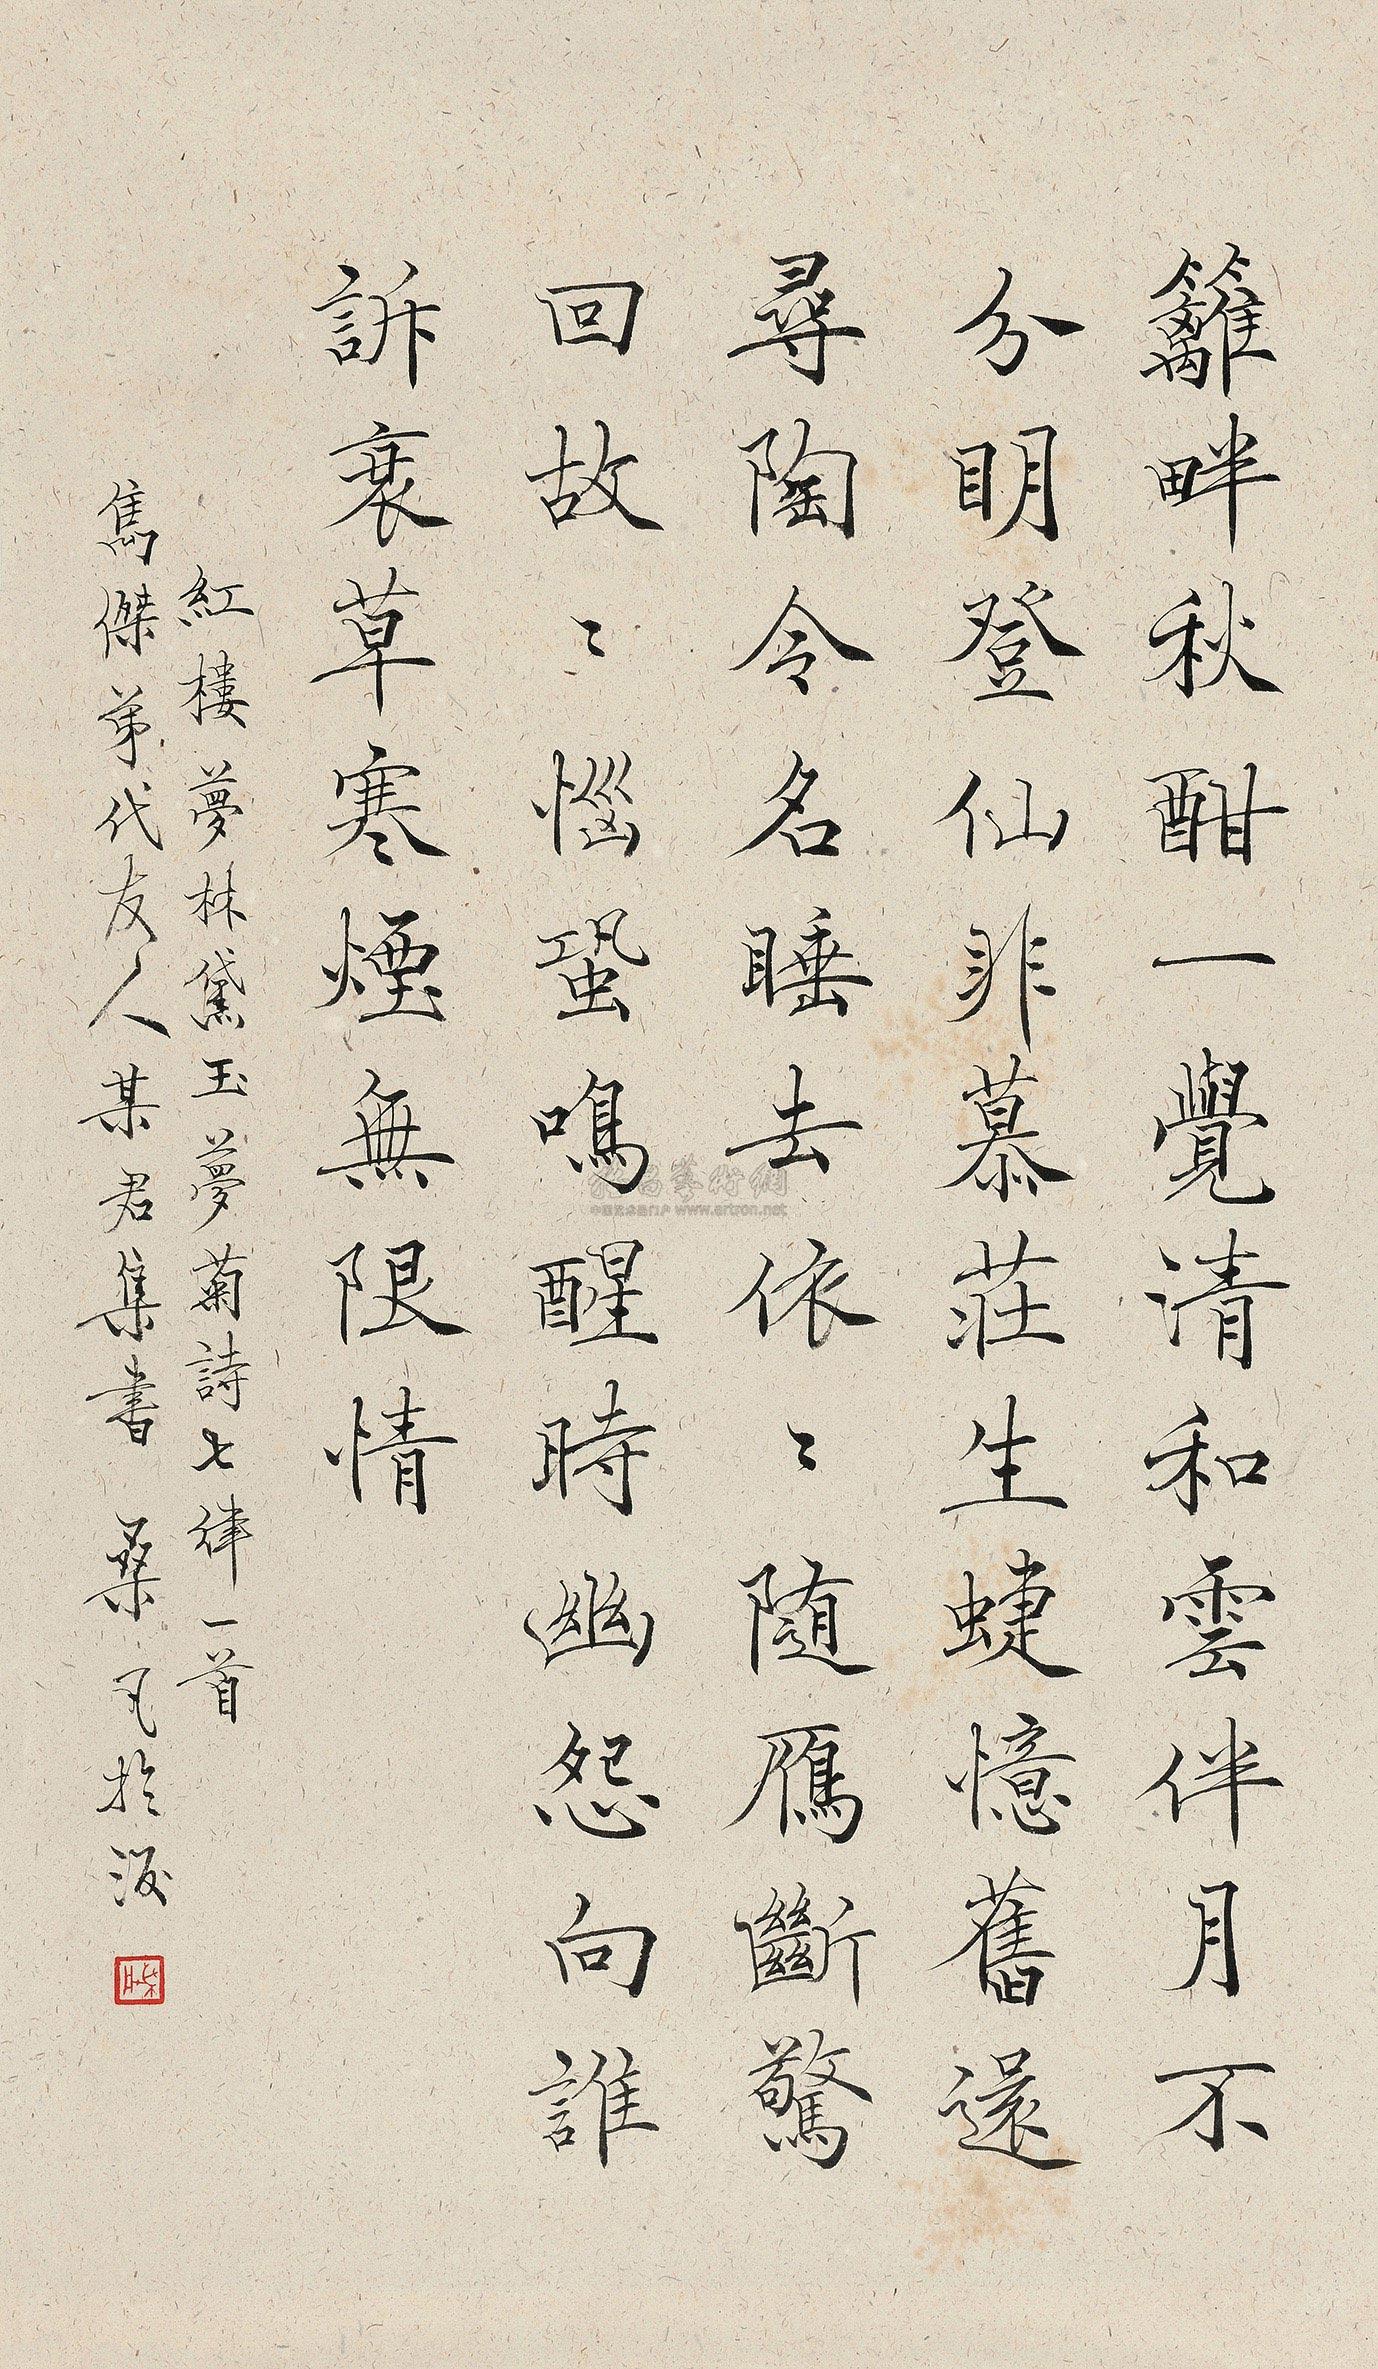 籬畔秋酣一覺清和雲伴月不
分明登仙非慕莊生蜨憶舊還
尋陶令名睡去依〻隨雁斷驚
回故〻惱蛩鳴醒時幽怨向誰
訴衰草寒煙無限情
紅樓夢林黛玉夢菊詩七律一首
雋傑弟代友人某君集書 桑凡於滬
www.artron.net